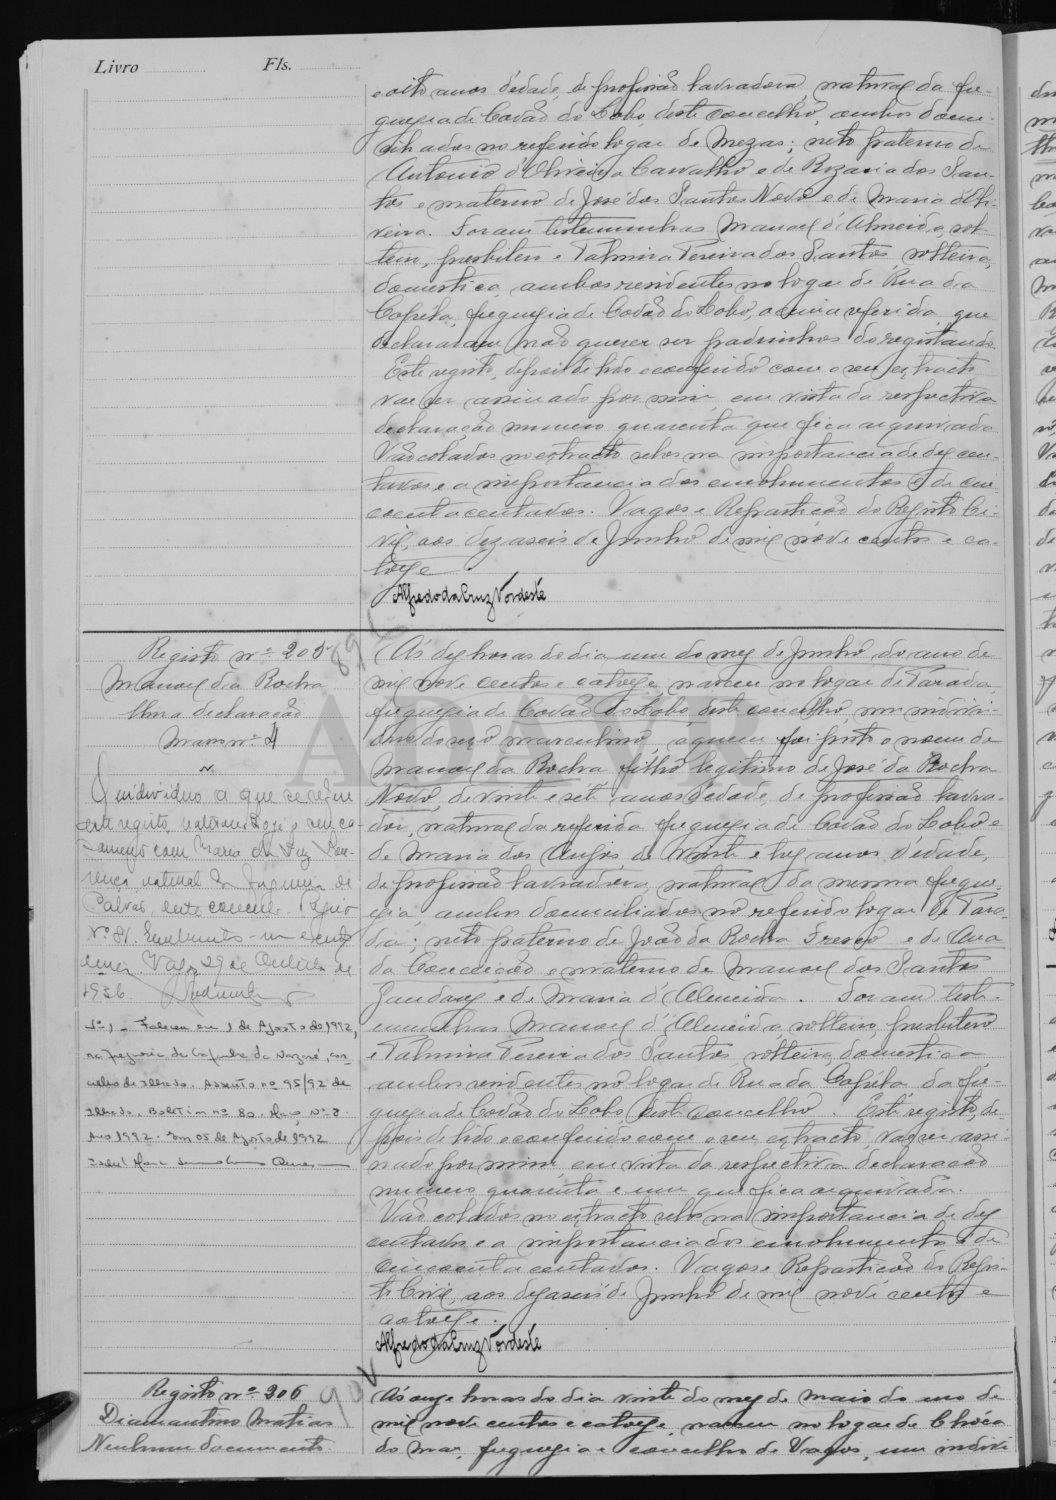 Livro Fls.
e oito anos d'edade, de profissão lavradora, natural da fre-
guezia de Covão do Lobo, deste concelho, ambos domi-
ciliados no referido logar de Mezas; neto paterno de
Antonio d'Oliveira Carvalho e de Rozaria dos San-
tos e materno de José dos Santos Novo e de Maria d'Oli-
veira. Foram testemunhas Manoel d'Almeida, sol-
teiro, presbitero e Palmira Pereira dos Santos, solteira,
domestica, ambos residentes no logar de Rua da
Capela, freguezia de Covão do Lobo, acima referida, que
declararam não querer ser padrinhos do registando.
Este registo, depois de lido e conferido com o seu extracto
vae ser assinado por mim, em vista da respectiva
declaração numero quarenta que fica arquivada.
Vão colados no extracto selos na importancia de dez cen-
tavos e a importancia dos emolumentos é de cin-
coenta centavos. Vagos e Repartição do Registo Ci-
vil, aos dezaseis de Junho de mil nove centos e ca-
torze.
Alfredo da Cruz Nordeste
Registo nº 205
Manoel da Rocha
Uma declaração
Maço nº 4
89 V
Ás dez horas do dia um do mez de Junho do ano de
mil nove centos e catorze, nasceu no logar de Parada,
freguezia de Covão do Lobo, deste concelho, um indivi-
duo do sexo masculino, a quem foi posto o nome de
Manoel da Rocha, filho legitimo de José da Rocha
Novo, de vinte e sete anos d'edade, de profissão lavra-
dor, natural da referida freguezia de Covão do Lobo e
de Maria dos Anjos, de vinte e trez anos d'edade,
de profissão lavradora, natural da mesma fregue-
zia, ambos domiciliados no referido logar de Para-
da; neto paterno de João da Rocha Fresco e de Ana
da Conceição e materno de Manoel dos Santos
Jandarez e de Maria d'Almeida. Foram test-
emunhas Manoel d'Almeida, solteiro, presbitero
e Palmira Pereira dos Santos, solteira, domestica,
ambos residentes no logar de Rua da Capéla da fre-
guezia de Covão do Lobo, deste concelho. Este registo, de-
pois de lido e conferido com o seu extracto, vae ser assi-
nado por mim, em vista da respectiva declaração
numero quarenta e um que fica arquivada.
Vão colados no extracto selos na importancia de dez
centavos e a importancia dos emolumentos é de
cincoenta centavos. Vagos e Repartição do Regis-
to Civil, aos dezaseis de Junho de mil nove centos e
catorze.
Alfredo da Cruz Nordeste
O individuo a que se refere
este registo, contraiu hoje o seu ca-
samento com Maria da Luz
natural da freguezia de
Calvão, deste concelho. Registo
Nº 81.
Vagos, 29 de Outubro de
1936.
Nº 1 - Faleceu em 1 de Agosto de 1992,
na freguesia de Gafanha da Nazaré, con-
celho de Ilhavo. Assento nº 95/92 de
Ilhavo. Boletim nº 80. Maço Nº 8
Ano 1992. Em 05 de Agosto de 1992
ADAVR
Registo nº 206
Diamantino Matias
Nenhum documento
90 V
Ás onze horas do dia vinte do mez de Maio do ano de
mil nove centos e catorze, nasceu no logar de Chóca
do Mar, freguezia e concelho de Vagos, um indivi